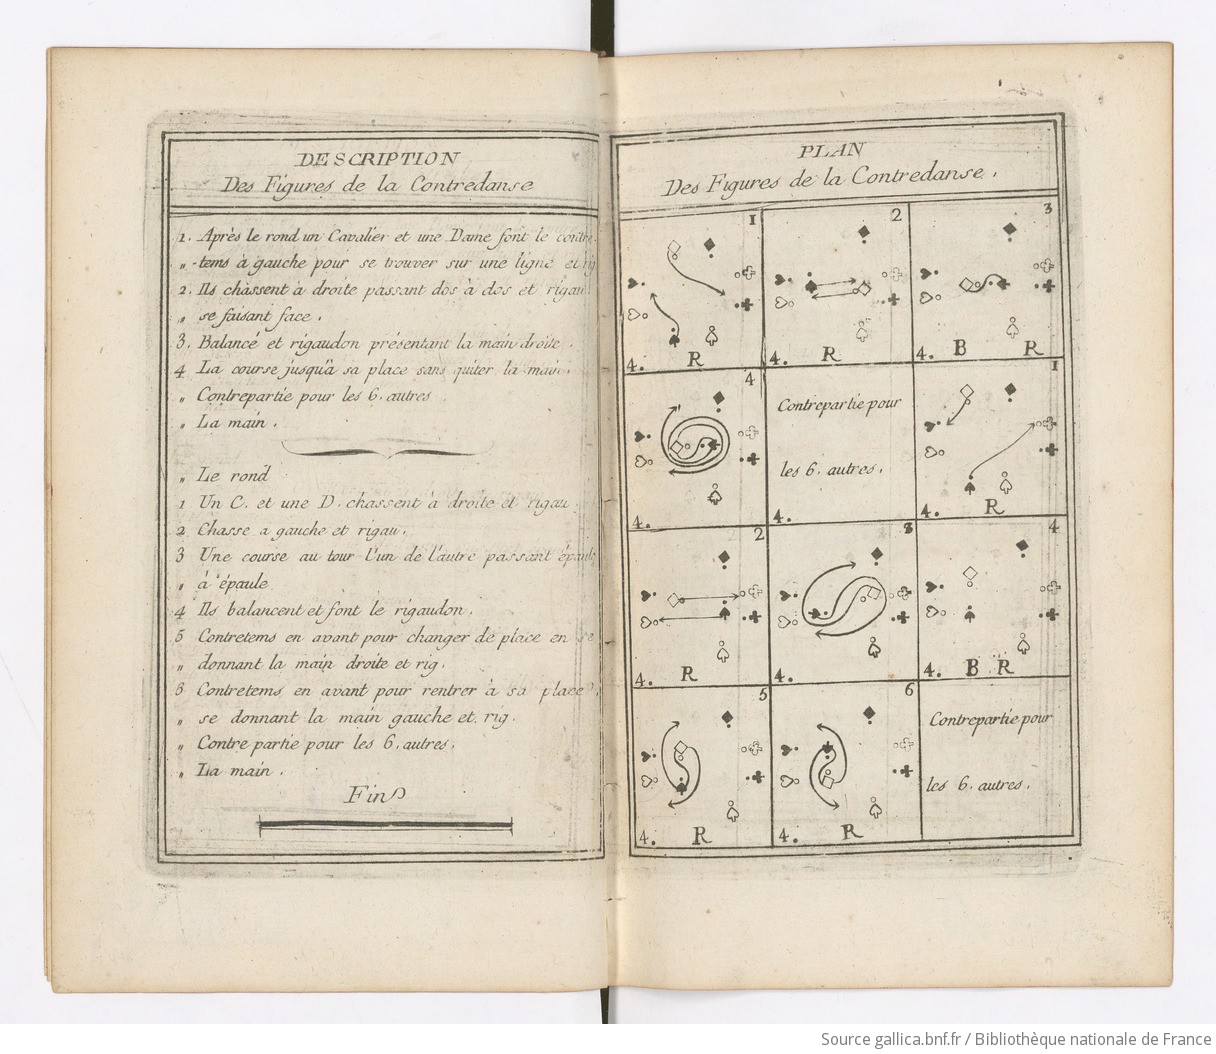 DESCRIPTION
Des Figures de la Contredanse
1. Après le rond un Cavalier et une Dame font le contre
„ -tems à gauche pour se trouver sur une ligne et rig
2. Ils chassent à droite passant dos à dos et rigau
„ se faisant face.
3. Balancé et rigaudon présentant la main droite.
4 La course jusqu'à sa place sans quiter la main.
„ Contrepartie pour les 6. autres
„ La main.
„ Le rond
1 Un C. et une D. chassent à droite et rigau.
2 Chasse a gauche et rigau.
3 Une course au tour l'un de l'autre passant épaule
„ à épaule
4 Ils balancent et font le rigaudon.
5 Contretems en avant pour changer de place en se
„ donnant la main droite et rig.
6 Contretems en avant pour rentrer à sa place
„ se donnant la main gauche et rig.
„ Contre partie pour les 6. autres.
„ La main.
Fin
PLAN
Des Figures de la Contredanse.
1
4. R
2
4. R
3
4. B R
4
4.
Contrepartie pour
les 6. autres.
4.
1
4. R
2
4. R
3
4.
4
4. B R
5
4. R
6
4. R
Contrepartie pour
les 6. autres.
Source gallica.bnf.fr / Bibliothèque nationale de France